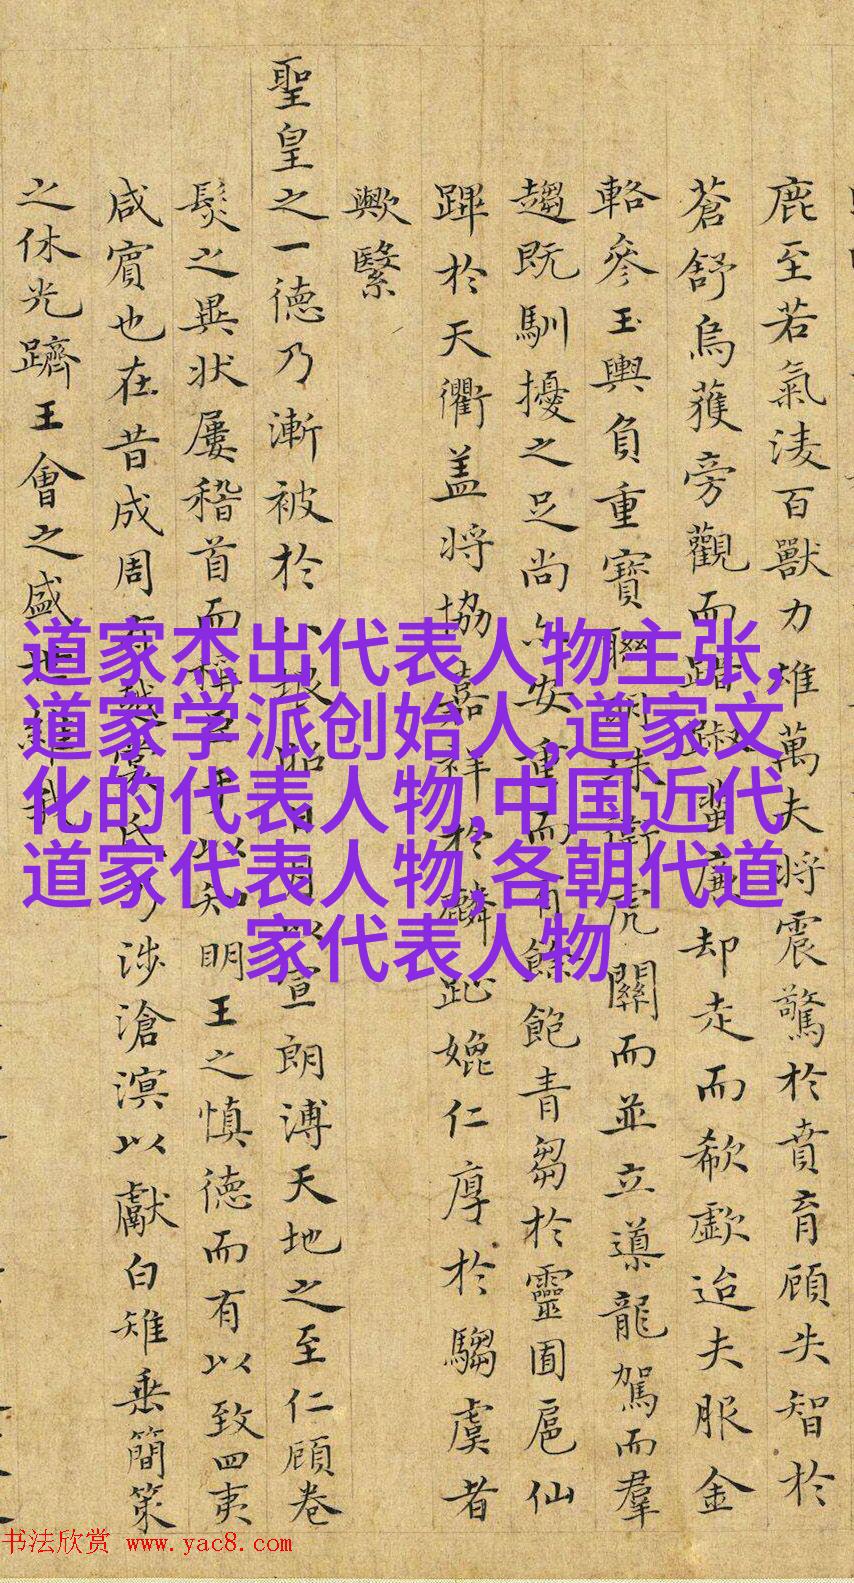 鹿至若氣淩百獸力雄萬夫將震驚於賁育顧失智於
蒼舒烏獲旁觀而踏踧蜚廉却走而欷歔迨夫服金
輅參玉輿負重寶聯珠衛虎關而並立導龍駕而羣
趨既馴擾之足尚亦安重而有餘飽青芻於靈囿扈仙
蹕於天衢蓋将協嘉祥於麟趾媲仁厚於騶虞者
歟繄
聖皇之一德乃漸被於八垠宣朗溥天地之至仁顧卷
髮之異状屢稽首而稱知明王之慎德而有以致四夷
咸賓也在昔成周有越裳氏乃涉滄溟以獻白雉垂簡策
之休光躋王會之盛世維我
道家杰出代表人物主张,
道家学派创始人,道家文
化的代表人物,中国近代
道家代表人物,各朝代道
家代表人物
书法欣赏 www.yac8.com